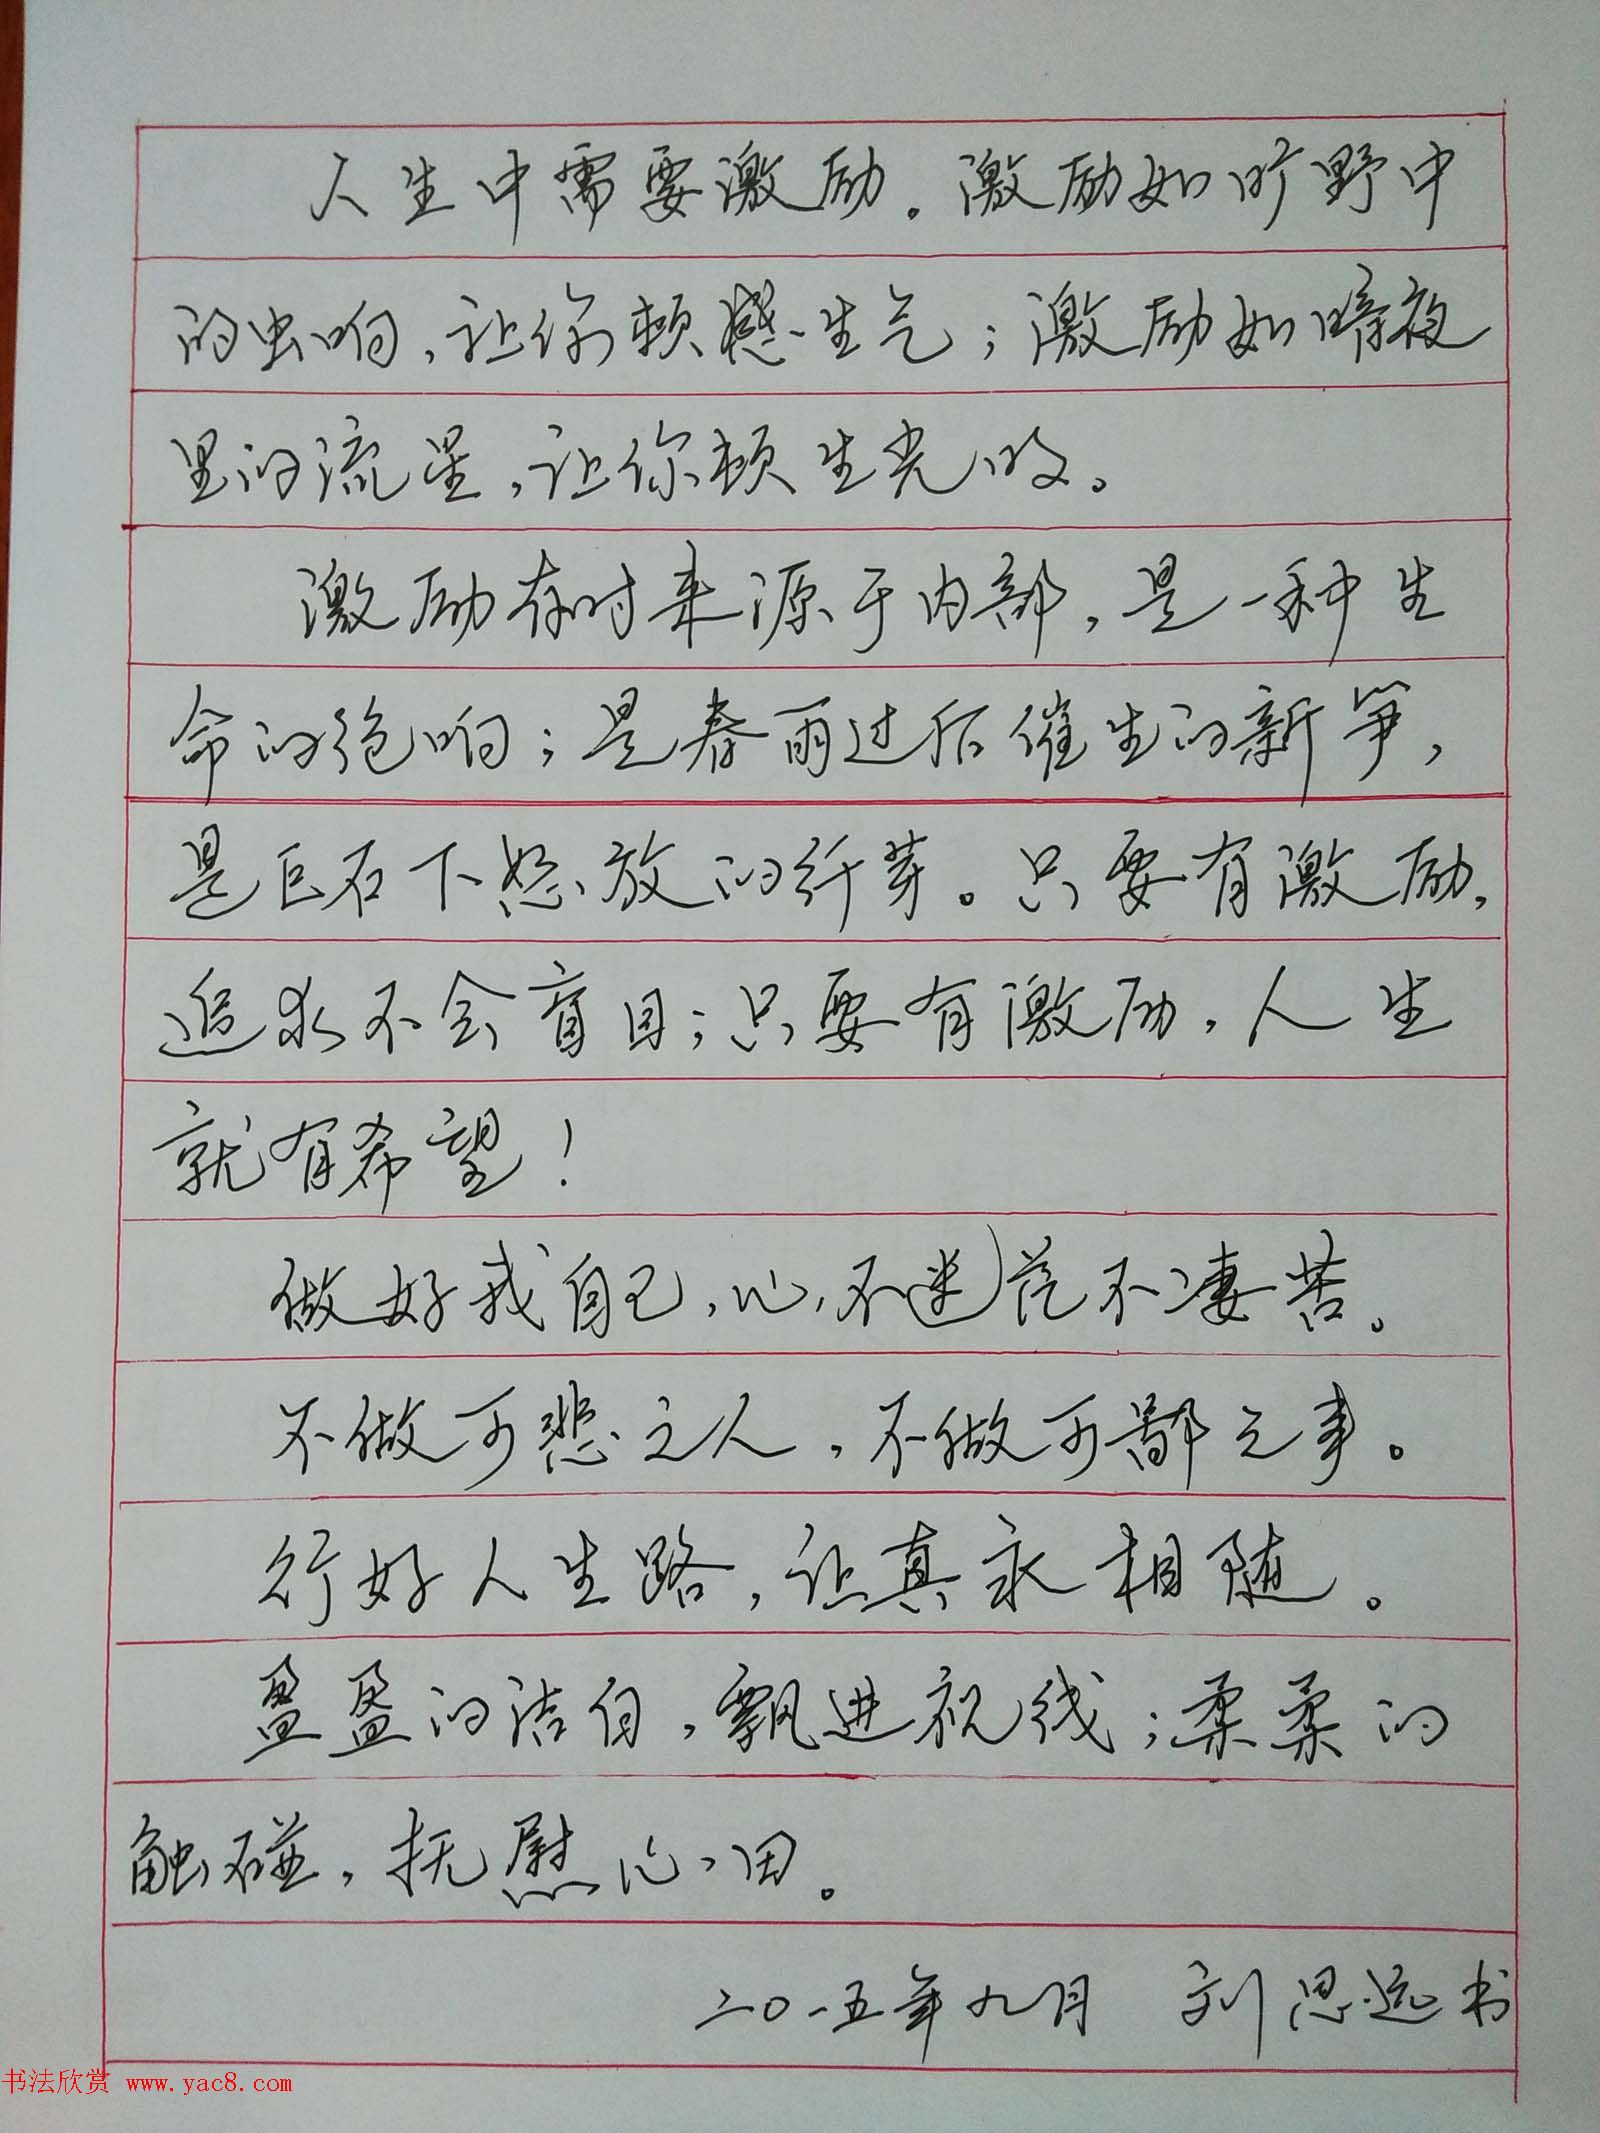 人生中需要激励。激励如旷野中
的虫响，让你顿感生气；激励如暗夜
里的流星，让你顿生光明。
激励有时来源于内部，是一种生
命的绝响；是春雨过后催生的新笋，
是巨石下怒放的纤芽。只要有激励，
追求不会盲目；只要有激励，人生
就有希望！
做好我自己，心不迷茫不凄苦。
不做可悲之人，不做可鄙之事。
行好人生路，让真永相随。
盈盈的洁白，飘进视线；柔柔的
触碰，抚慰心田。
二〇一五年九月 刘思远书
书法欣赏 www.yac8.com